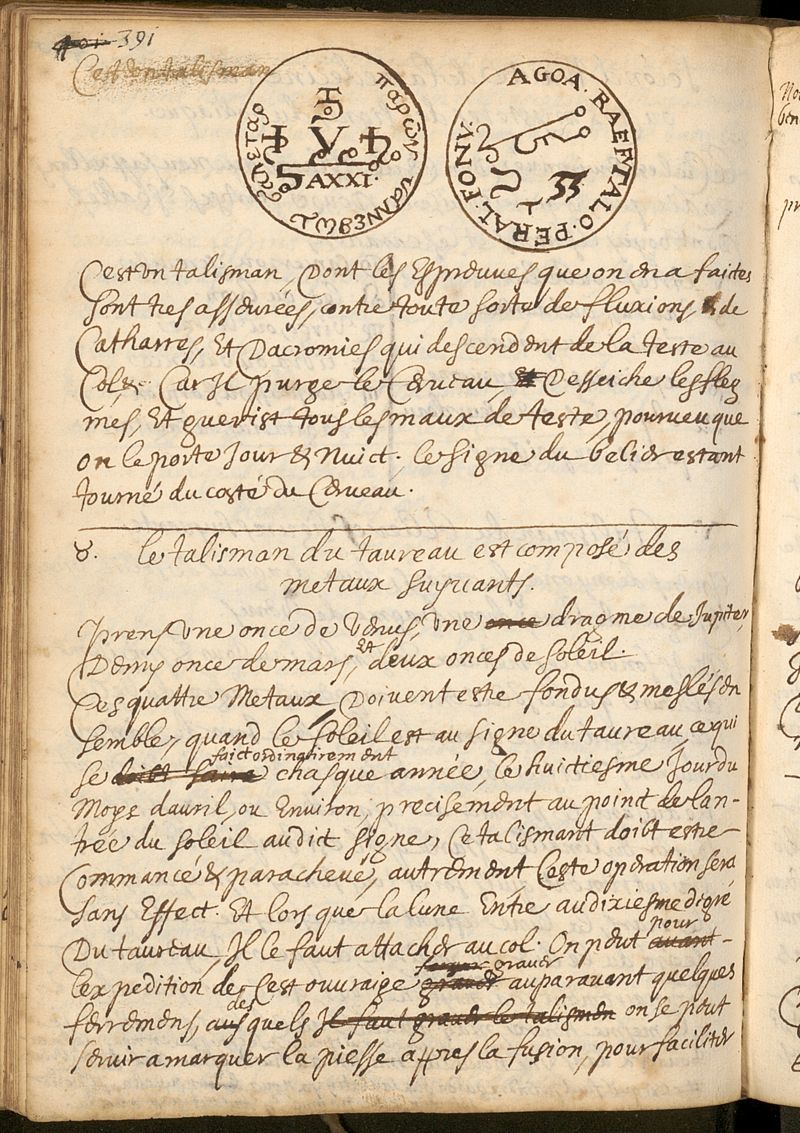 391
C'est un talisman
παρων
AXXI.
AGOA. RAEFTALO. PERAL. FONV.
33
C'est un talisman, Dont les Espreuves que on en a faites
sont tres asseurées, contre toute sorte de fluxions & de
Catharres, Et Dacromies qui descendent de la teste au
Col, &. Car Il purge le Cerveau, Desseiche les fleg
mes, Et guerist tous les maux de teste, pourveu que
on le porte Jour & Nuict. le signe du belier estant
tourné du costé du Cerveau.
8. le talisman du taureau est composé des
metaux suyvants.
prens une once de Venus, une once dragme de Jupiter,
Demy once de mars, Et deux onces de soleil.
Ces quattre Metaux Doivent estre fondus & meslés en
semble, quand le soleil est au signe du taureau, ce qui
se doibt faire faict ordinairement chasque année, le huictiesme Jour du
Moys d'avril, ou Environ, precisement au poinct de l'an-
trée du soleil audict signe, Ce talismant doibt estre
Commancé & parachevé, autrement Ceste operation sera
sans Effect. Et lors que la lune Entre au dixiesme degré
Du taureau, Il le faut attacher au col. On peut avant pour
l'expedition de Cest ouvraige graver graver auparavant quelques
ferremens, desquels Il faut graver le talismen on se peut
servir a marquer la piesse appres la fusion, pour faciliter